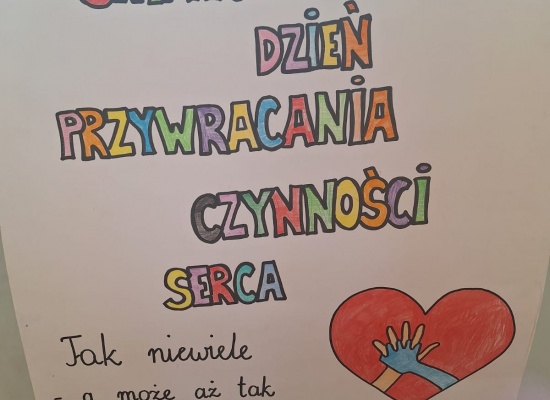 DZIEŃ
PRZYWRACANIA
CZYNNOŚCI
SERCA
Tak niewiele
- a może aż tak